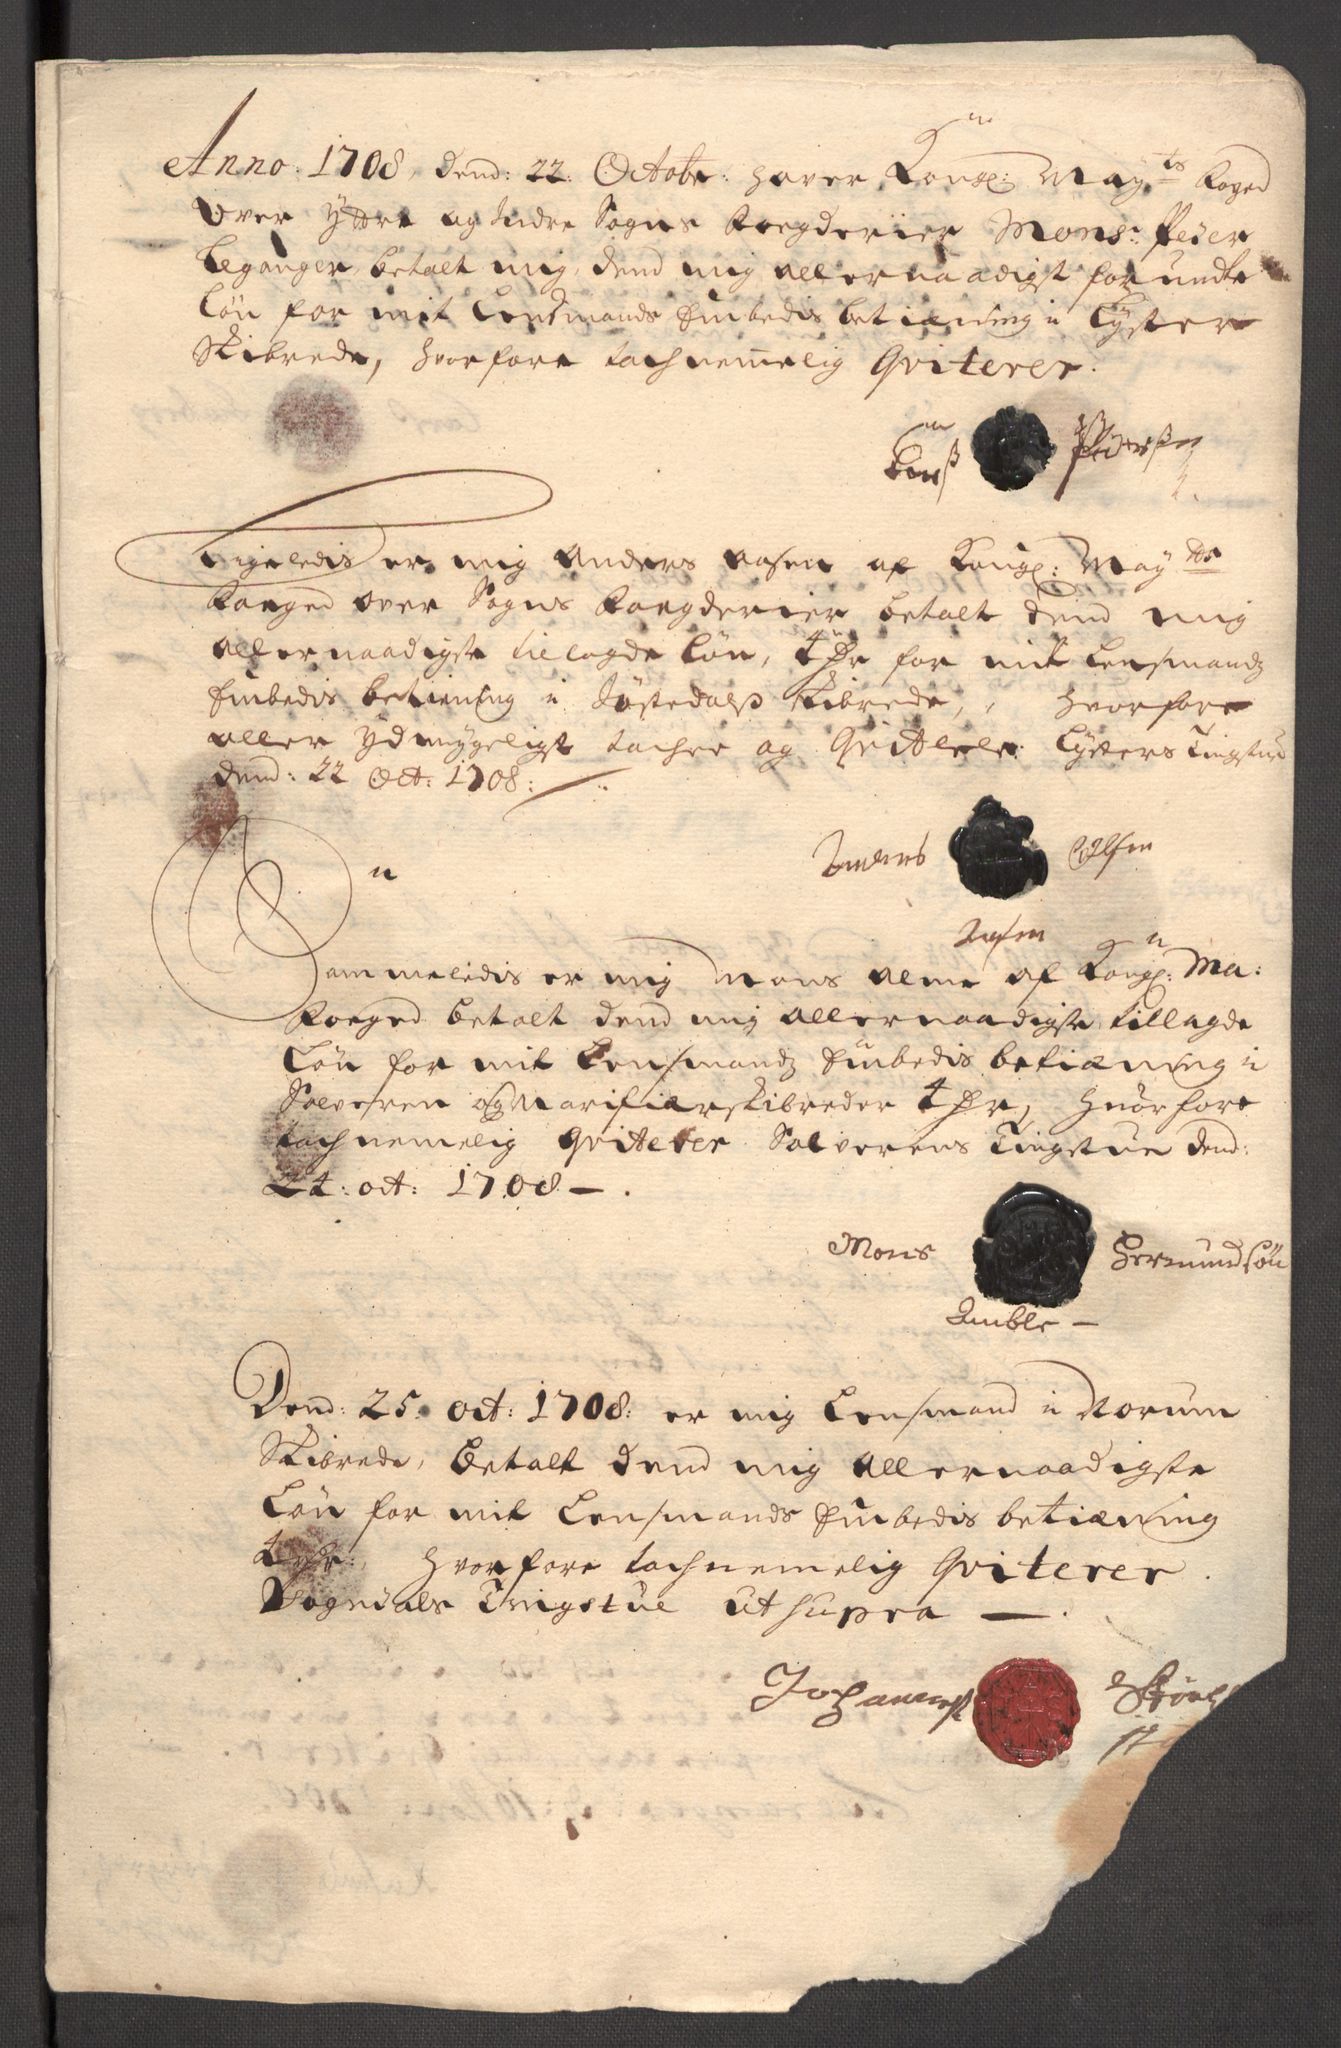 Anno 1708, dend: 22. Octobr: haver Kongl: May:ts foged
over Ydre og Indre Sogns fougderier Mons:r Peder
Leganger, betalt mig, dend mig allernaadigst forundte
Løn for mit Lensmands Embedis betiæning i Lyster
Skibrede, hvorfore tachnemelig Qviterer.
Larß Pederßøn
Ligeledis er mig Anders Aasen af Kongl: May:ts
Fouged over Sogns Fougderier betalt dend mig
allernaadigste tillagde Løn, 4 dr for mit Lensmandz
Embedis betiening i Jostedalß Skibrede, hvorfore
aller ydmygeligst tacher og Qviterer. Lysters Tingstue
dend: 22 Oct: 1708:
Anders Olsen
Aasen
Sammeledis er mig Mons Amle af Kongl: Ma:
Fouged betalt dend mig allernaadigste tillagde
Løn for mit Lensmandz Embedis betiæning i
Solvoren og Marifiær skibreder 4 dr, hvorfore
tachnemelig Qviterer Solvorens Tingstue dend:
24: oct: 1708 -.
Mons Hermundsøn
Amble -
Dend: 25. oct: 1708: er mig Lensmand i Norum
Skibrede, betalt dend mig allernaadigste
Løn for mit Lensmands Embedis betiæning
4 dr: hvorfore tachnemelig Qviterer
Sogndals Tingstue ut supra -.
Johanneß